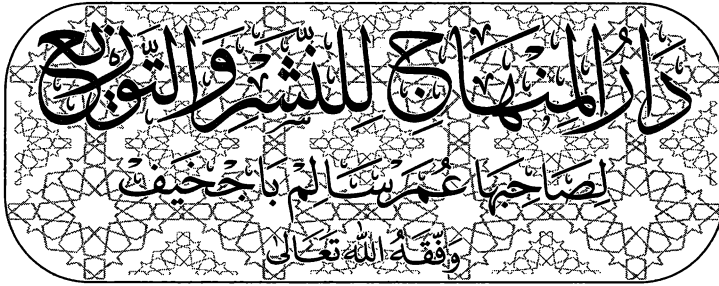 دَارُ المِنْهَاجِ لِلنَّشْرِ وَالتَّوْزِيعِ
لِصَاحِبِهَا عُمَر سَالِم بَاجْخَيفْ
وَفَّقَهُ اللهُ تَعَالَىٰ